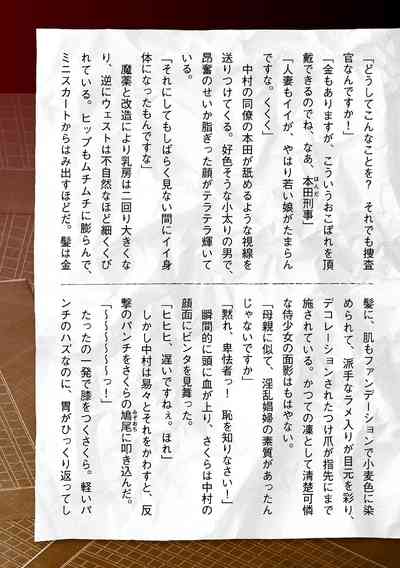 「どうしてこんなことを？　それでも捜査
官なんですか！」
「金もありますが、こういうおこぼれを頂
戴できるのでね、なあ、本田刑事」
「人妻もイイが、やはり若い娘がたまらん
ですな。くくく」
　中村の同僚の本田が舐めるような視線を
送りつけてくる。好色そうな小太りの男で、
昂奮のせいか脂ぎった顔がテラテラ輝いて
いる。
「それにしてもしばらく見ない間にイイ身
体になったもんですな」
　魔薬と改造により乳房は二回り大きくな
り、逆にウェストは不自然なほど細くくび
れている。ヒップもムチムチに膨らんで、
ミニスカートからはみ出すほどだ。髪は金
髪に、肌もファンデーションで小麦色に染
められて、派手なラメ入りが目元を彩り、
デコレーションされたつけ爪が指先にまで
施されている。かつての凜として清楚可憐
な侍少女の面影はもはやない。
「母親に似て、淫乱娼婦の素質があったん
じゃないですか」
「黙れ、卑怯者っ！　恥を知りなさい！」
　瞬間的に頭に血が上り、さくらは中村の
顔面にビンタを見舞った。
「ヒヒヒ、遅いですねぇ。ほれ」
　しかし中村は易々とそれをかわすと、反
撃のパンチをさくらの鳩尾に叩き込んだ。
「～～～～～～っ！」
　たったの一発で膝をつくさくら。軽いパ
ンチのハズなのに、胃がひっくり返ってし